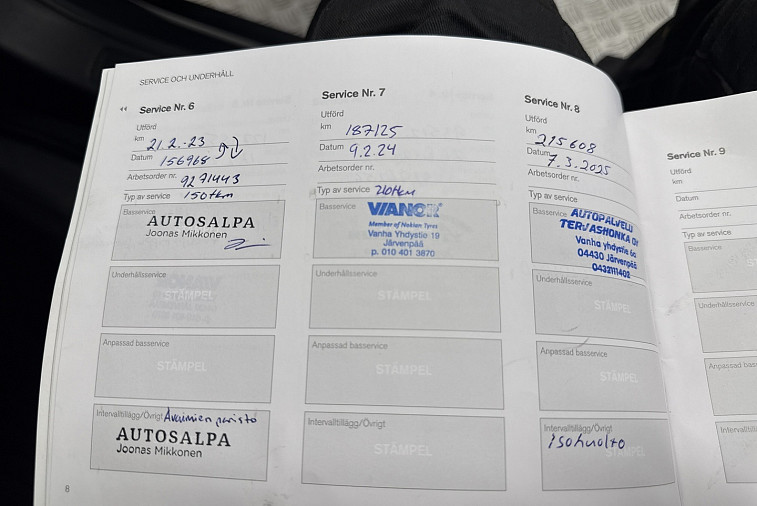 SERVICE OCH UNDERHÅLL
Service Nr. 6
Utförd
km 21.2.-23
Datum 156968
Arbetsorder nr. 9271443
Typ av service 150tkm
Basservice
AUTOSALPA
Joonas Mikkonen
Underhållsservice
STÄMPEL
Anpassad basservice
STÄMPEL
Intervalltillägg/Övrigt Avaimien paristo
AUTOSALPA
Joonas Mikkonen
8
Service Nr. 7
Utförd
km 187125
Datum 9.2.24
Arbetsorder nr.
Typ av service 210tkm
Basservice
VIANOR
Member of Nokian Tyres
Vanha Yhdystie 19
Järvenpää
p. 010 401 3870
Underhållsservice
STÄMPEL
Anpassad basservice
STÄMPEL
Intervalltillägg/Övrigt
STÄMPEL
Service Nr. 8
Utförd
km 215608
Datum 7.3.2025
Arbetsorder nr.
Typ av service
Basservice
AUTOPALVELU
TERVASHONKA Oy
Vanha yhdystie 6a
04430 Järvenpää
0432111402
Underhållsservice
STÄMPEL
Anpassad basservice
STÄMPEL
Intervalltillägg/Övrigt
isohuolto
Service Nr. 9
Utförd
km
Datum
Arbetsorder nr.
Typ av service
Basservice
Underhållsservice
Anpassad bass
Intervalltill